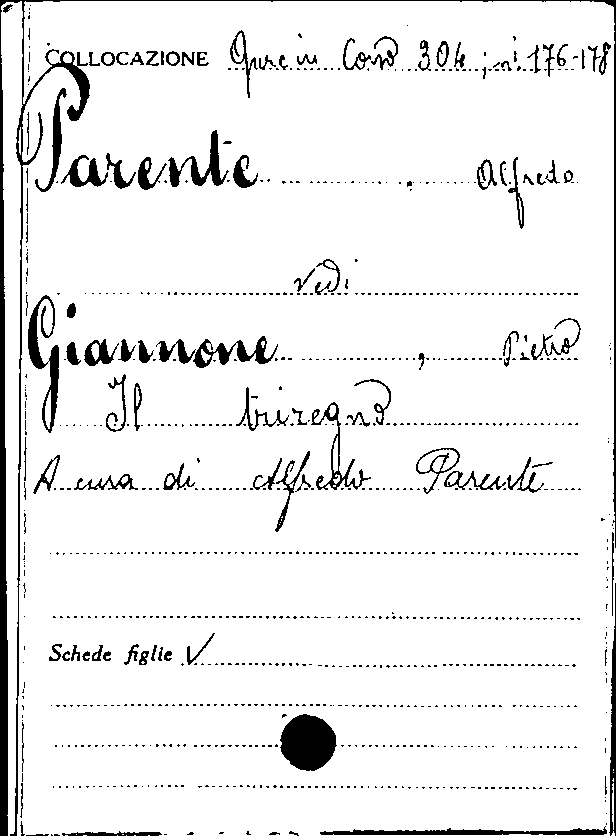 COLLOCAZIONE Qure in Cons 304; ni. 176-178
Parente, Alfredo
Vedi
Giannone, Pietro
Il triregno
A cura di Alfredo Parente
Schede figlie ✓